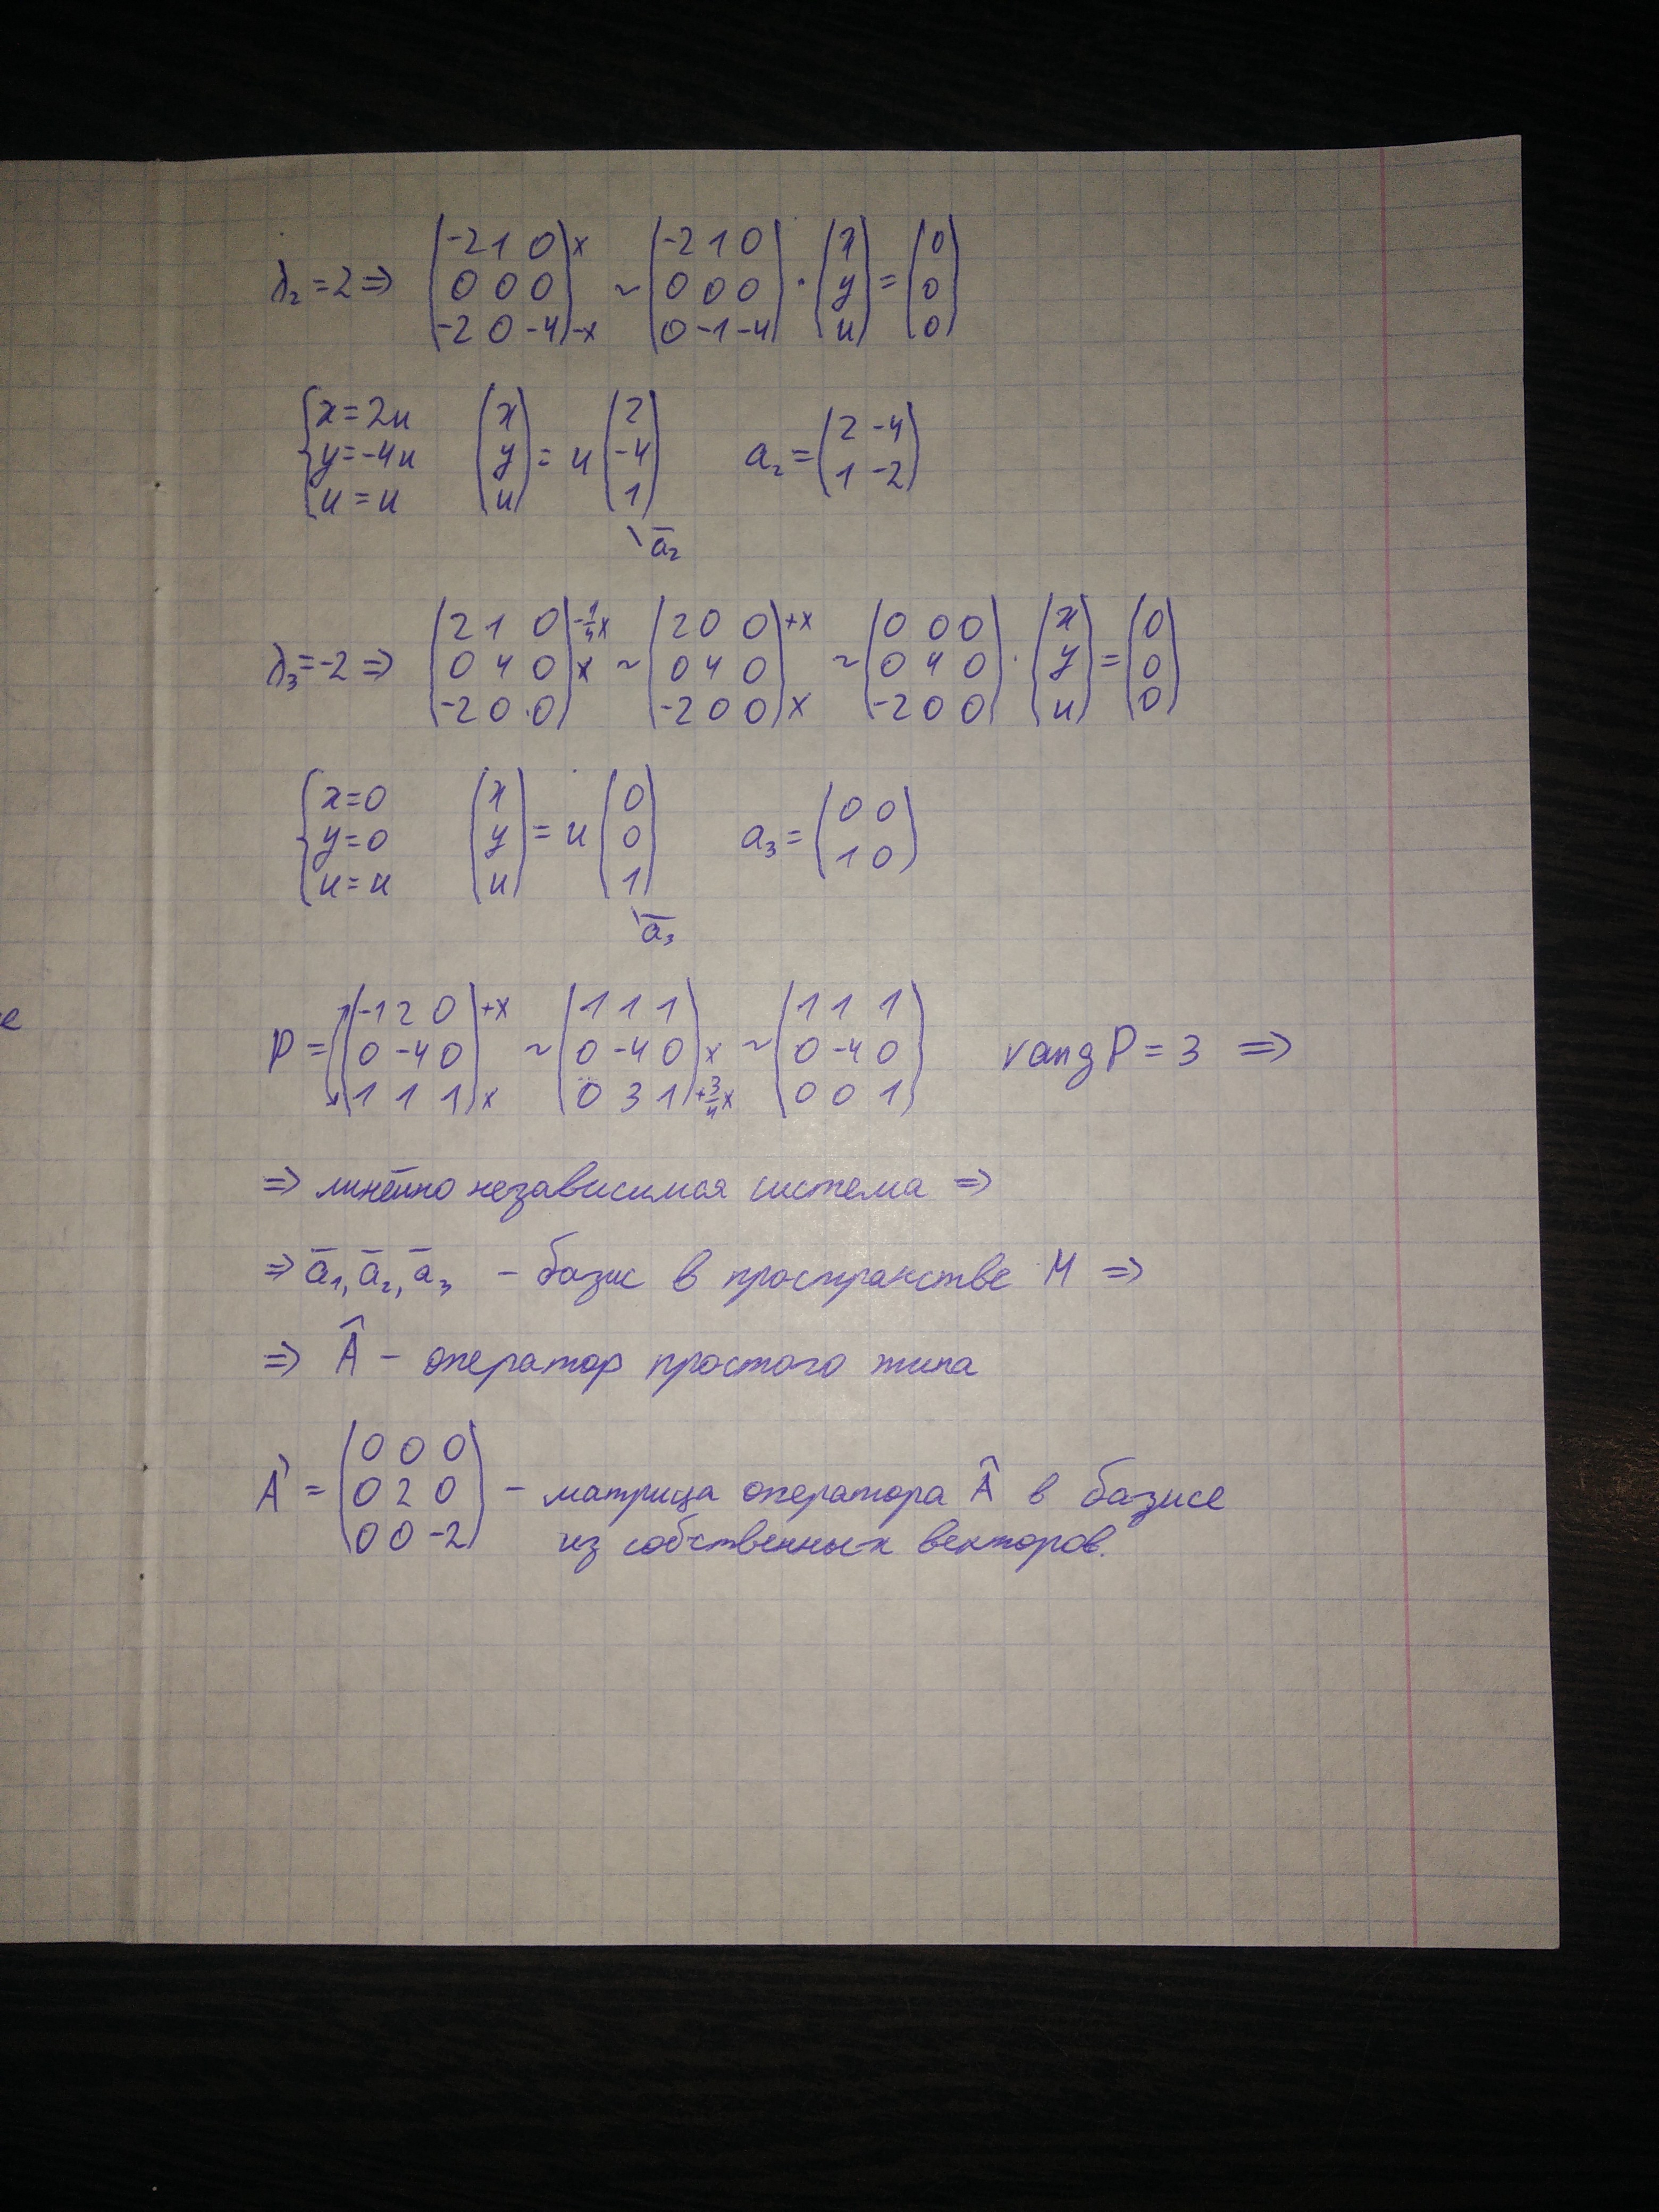 λ₂ = 2 ⇒ (-2 1 0; 0 0 0; -2 0 -4) x -x ~ (-2 1 0; 0 0 0; 0 -1 -4) · (x; y; u) = (0; 0; 0)
{x = 2u; y = -4u; u = u (x; y; u) = u (2; -4; 1) a₂ = (2 -4; 1 -2)
a̅₂
λ₃ = -2 ⇒ (2 1 0; 0 4 0; -2 0 0) -¼x x ~ (2 0 0; 0 4 0; -2 0 0) +x x ~ (0 0 0; 0 4 0; -2 0 0) · (x; y; u) = (0; 0; 0)
{x = 0; y = 0; u = u (x; y; u) = u (0; 0; 1) a₃ = (0 0; 1 0)
a̅₃
P = (-1 2 0; 0 -4 0; 1 1 1) +x x ~ (1 1 1; 0 -4 0; 0 3 1) x +¾x ~ (1 1 1; 0 -4 0; 0 0 1) rang P = 3 ⇒
⇒ линейно независимая система ⇒
⇒ a̅₁, a̅₂, a̅₃ - базис в пространстве M ⇒
⇒ Â - оператор простого типа
A' = (0 0 0; 0 2 0; 0 0 -2) - матрица оператора Â в базисе
из собственных векторов.